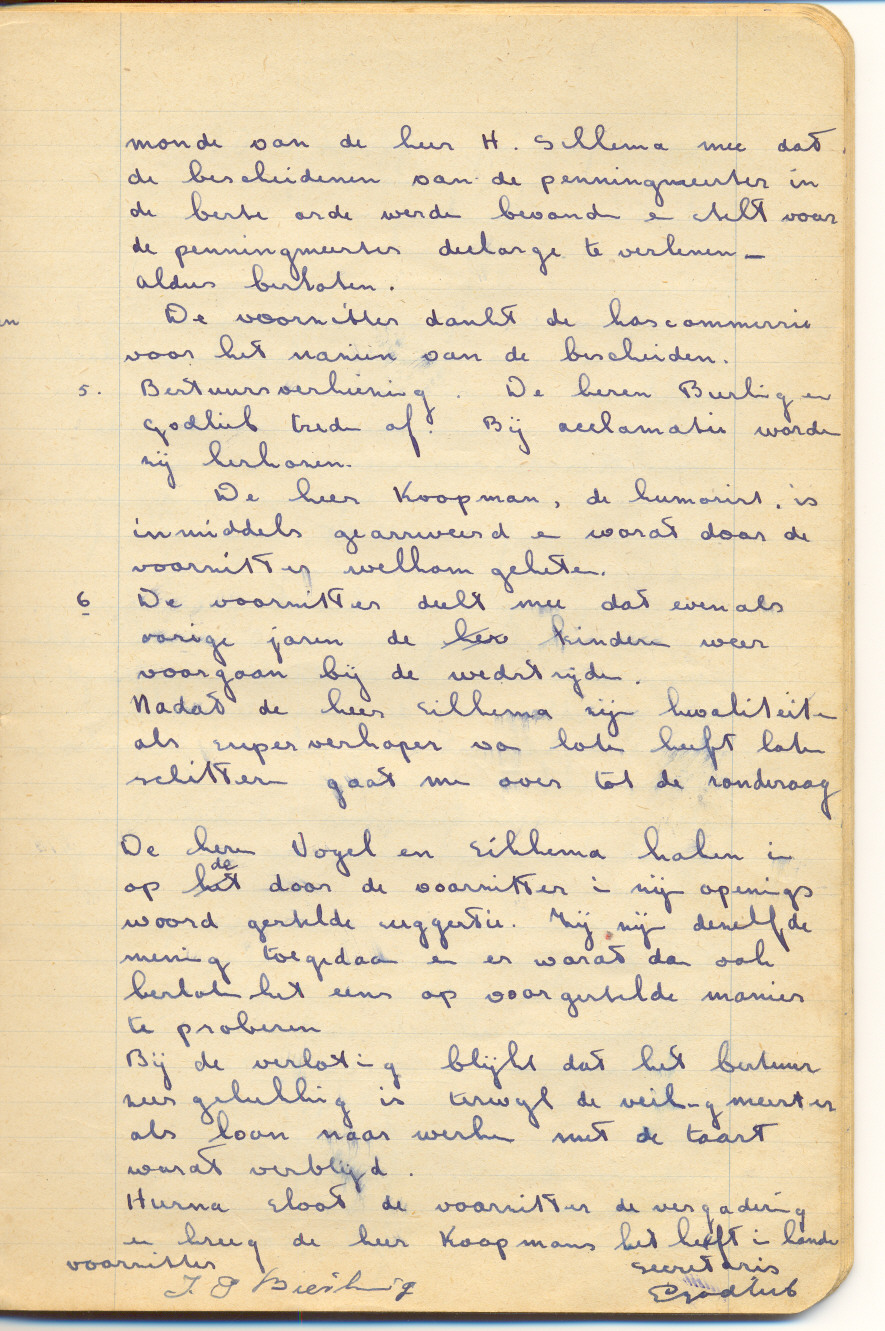 monde van de heer H. Sikkema mee dat
de bescheidenen van de penningmeester in
de beste orde werden bevonden en stelt voor
de penningmeester decharge te verlenen –
Aldus besloten.
De voorzitter dankt de kascommissie
voor het nazien van de bescheiden.
5. Bestuursverkiezing. De heren Bierling en
Godlieb treden af. Bij acclamatie worden
zij herkozen.
De heer Koopman, de humorist, is
inmiddels gearriveerd en wordt door de
voorzitter welkom geheten.
6 De voorzitter deelt mee dat evenals
vorige jaren de kinderen weer
voorgaan bij de wedstrijden.
Nadat de heer Sikkema zijn kwaliteiten
als superverkoper van loten heeft laten
schitteren gaat men over tot de rondvraag
De heren Vogel en Sikkema haken in
op de door de voorzitter in zijn openings
woord gestelde suggestie. Zij zijn dezelfde
mening toegedaan en er wordt dan ook
besloten het eens op voorgestelde manier
te proberen
Bij de verloting blijkt dat het bestuur
zeer gelukkig is terwijl de veilingmeester
als loon naar werken met de taart
wordt verblijd.
Hierna sloot de voorzitter de vergadering
en kreeg de heer Koopmans het heft in handen
voorzitter secretaris
Godlieb